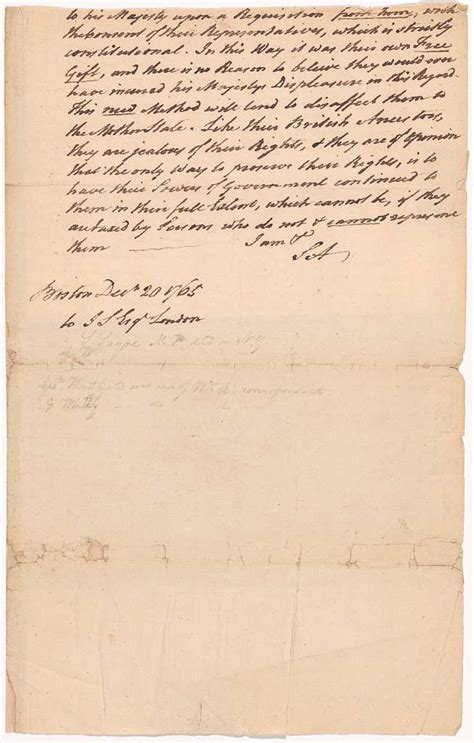 to his Majesty upon a Requisition from him, with
the Consent of their Representatives, which is strictly
constitutional. In this Way it was their own Free
Gift, and there is no Reason to believe they would ever
have incurred his Majestys Displeasure in this Regard.
This new Method will tend to disaffect them to
the Mother State. Like their British Ancestors,
they are jealous of their Rights, & they are of Opinion
that the only Way to preserve their Rights, is to
have their Powers of Government continued to
them in their full Extent, which cannot be, if they
are taxed by Persons who do not & cannot represent
them
I am &
SA
Boston Decr 20 1765
to J S Esqr London